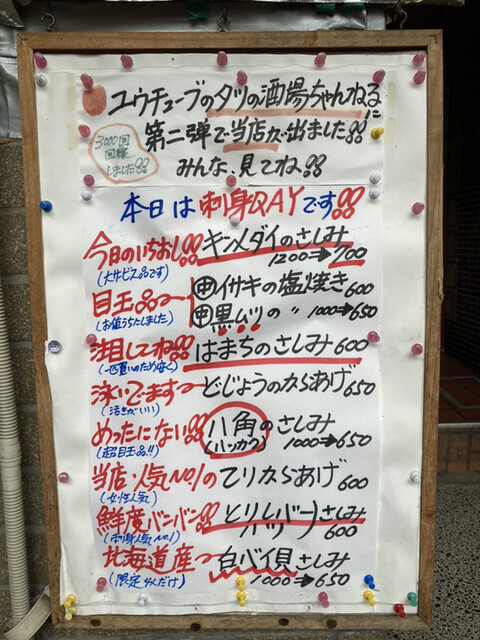 ユウチューブのタツの酒場ちゃんねるに
第二弾で当店が出ました!!
3000回
回線
しました!!
みんな、見てね!!
本日は刺身DAYです!!
今日のいちおし!! キンメダイのさしみ
(大サービス品です) 1200⇒700
目玉品〜 ㊥イサキの塩焼き600
(お値うちたしました) ㊥黒ムツの 〃 1000⇒650
注目してね!! はまちのさしみ600
泳いでます〜 どじょうのからあげ650
(活きがいい)
めったにない!! 八角のさしみ
(超目玉品!!) (ハッカク) 1000⇒650
当店・人気No1のてりからあげ600
(女性人気)
鮮度バンバン!! とりレバーさしみ
(刺身人気No.1) ハツ 600
北海道産〜 白バイ貝さしみ
(限定4人だけ) 1000⇒650